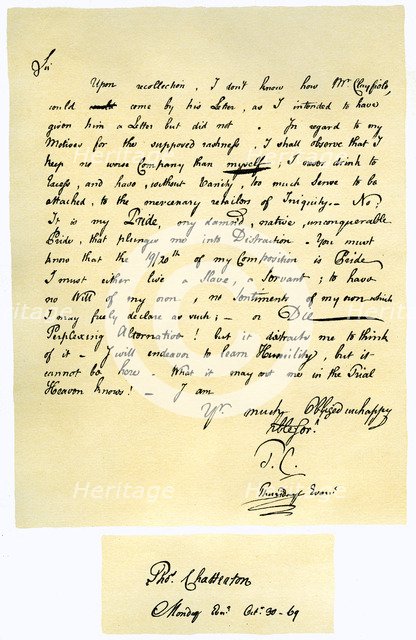 Sir
Upon recollection, I don't know how Mr. Clayfield
could come by his Letter, as I intended to have
given him a Letter but did not. In regard to my
Motives for the supposed rashness, I shall observe that I
keep no worse Company than myself; I never drink to
Excess, and have, without Vanity, too much Sense to be
attached, to the mercenary retailers of Iniquity. — No,
It is my Pride, my damn'd, native, unconquerable
Pride, that plunges me into Distraction. You must
know that the 19/20th of my Composition is Pride
I must either live a Slave, a Servant; to have
no Will of my own, no Sentiments of my own which
I may freely declare as such; — or Die
Perplexing Alternative! but it distracts me to think
of it — I will endeavor to learn Humility, but it
cannot be here. What it may cost me in the Trial
Heaven knows! — I am
Yr. much Obliged unhappy
Hble Ser.t
T. C.
Thursday Even.g
Thos. Chatterton
Monday Eng. Oct. 30 - 69
Heritage
Heritage
Heritage